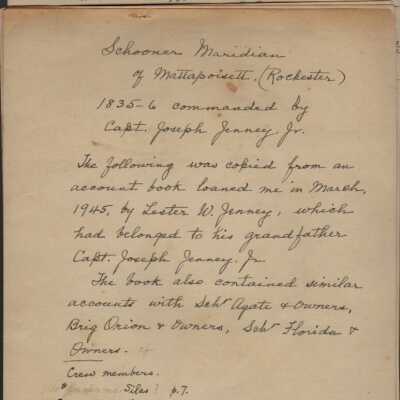 Schooner Maridian
of Mattapoisett. (Rochester)
1835-6 commanded by
Capt. Joseph Jenney, Jr.
The following was copied from an
account book loaned me in March,
1945, by Lester W. Jenney, which
had belonged to his grandfather
Capt. Joseph Jenney, Jr
The book also contained similar
accounts with Schr Agate & Owners,
Brig Orion & Owners, Schr Florida &
Owners.
Crew members.
Silas? p.7.